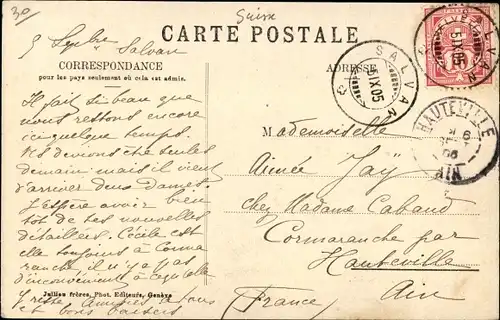 30
Suisse
5 Septbre Salvan
CARTE POSTALE
CORRESPONDANCE
pour les pays seulement où cela est admis.
ADRESSE
SALVAN
5 IX 05
SALVAN
5 IX 05
HAUTEVILLE
AIN
Il fait si beau que
nous restons encore
ici quelque temps.
Ns devions être seules
demain mais il vient
d'arriver deux dames.
J'espère avoir bien
tôt de tes nouvelles
détaillées. Cécile est
elle toujours à Corma
ranche il n'y a pas
d'inconvénient à ce qu'elle
y reste
et bons baisers
Mademoiselle
Aimée Jaÿ
chez Madame Caband
Cormaranche par
Hauteville
Ain
France
Jullien frères, Phot. Editeurs, Genève